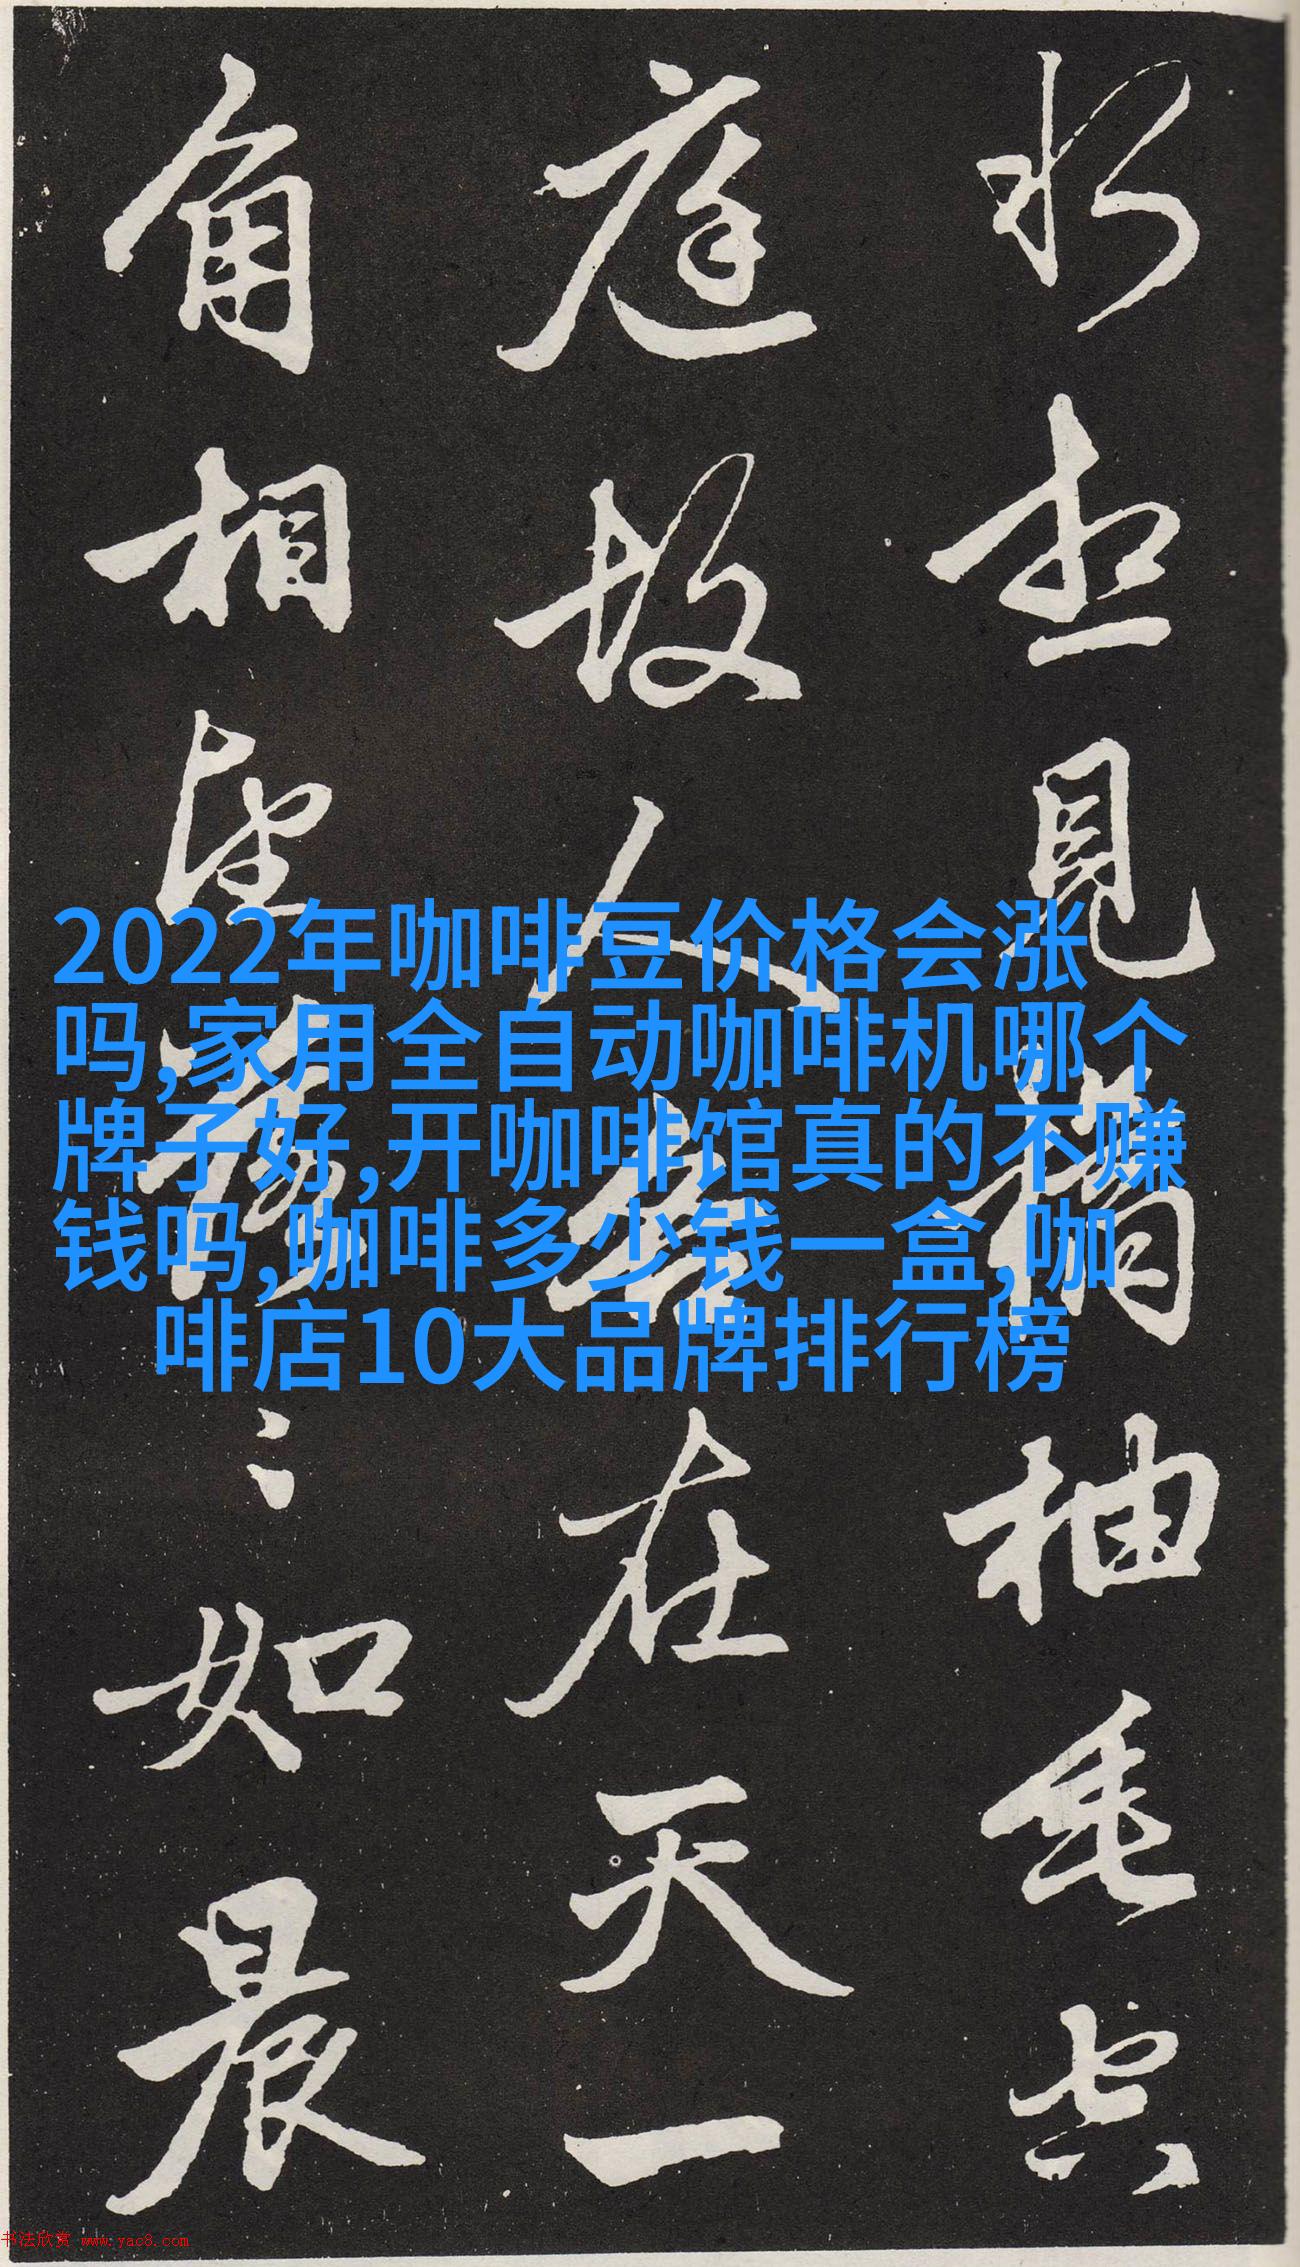 水想見橘柚垂共
庭故人若在天一
角相望落〻如晨
2022年咖啡豆价格会涨
吗,家用全自动咖啡机哪个
牌子好,开咖啡馆真的不赚
钱吗,咖啡多少钱一盒,咖
啡店10大品牌排行榜
书法欣赏 www.yac8.com